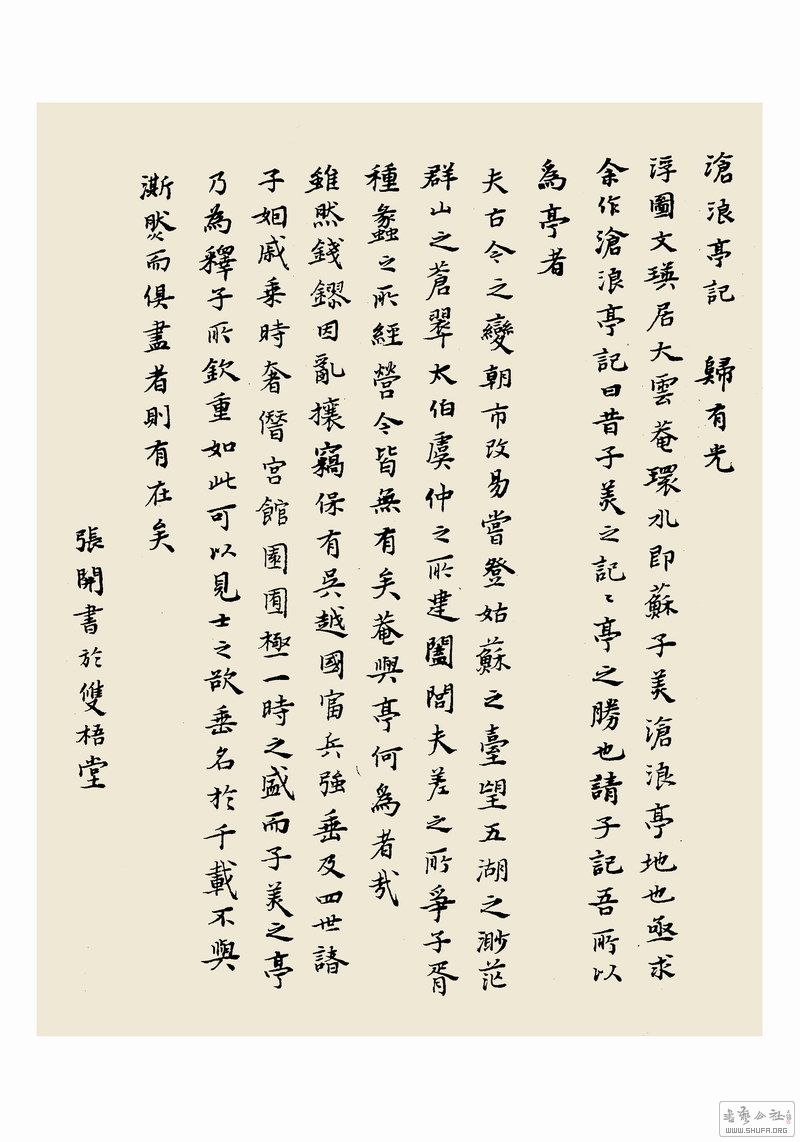 滄浪亭記　歸有光
浮圖文瑛居大雲菴環水即蘇子美滄浪亭地也亟求
余作滄浪亭記曰昔子美之記〻亭之勝也請子記吾所以
為亭者
夫古今之變朝市改易嘗登姑蘇之臺望五湖之渺茫
群山之蒼翠太伯虞仲之所建闔閭夫差之所爭子胥
種蠡之所經營今皆無有矣菴與亭何為者哉
雖然錢鏐因亂攘竊保有吳越國富兵強垂及四世諸
子姻戚乗時奢僭宮館園囿極一時之盛而子美之亭
乃為釋子所欽重如此可以見士之欲垂名於千載不與
澌然而俱盡者則有在矣
張開書於雙梧堂
書藝公社
WWW.SHUFA.ORG